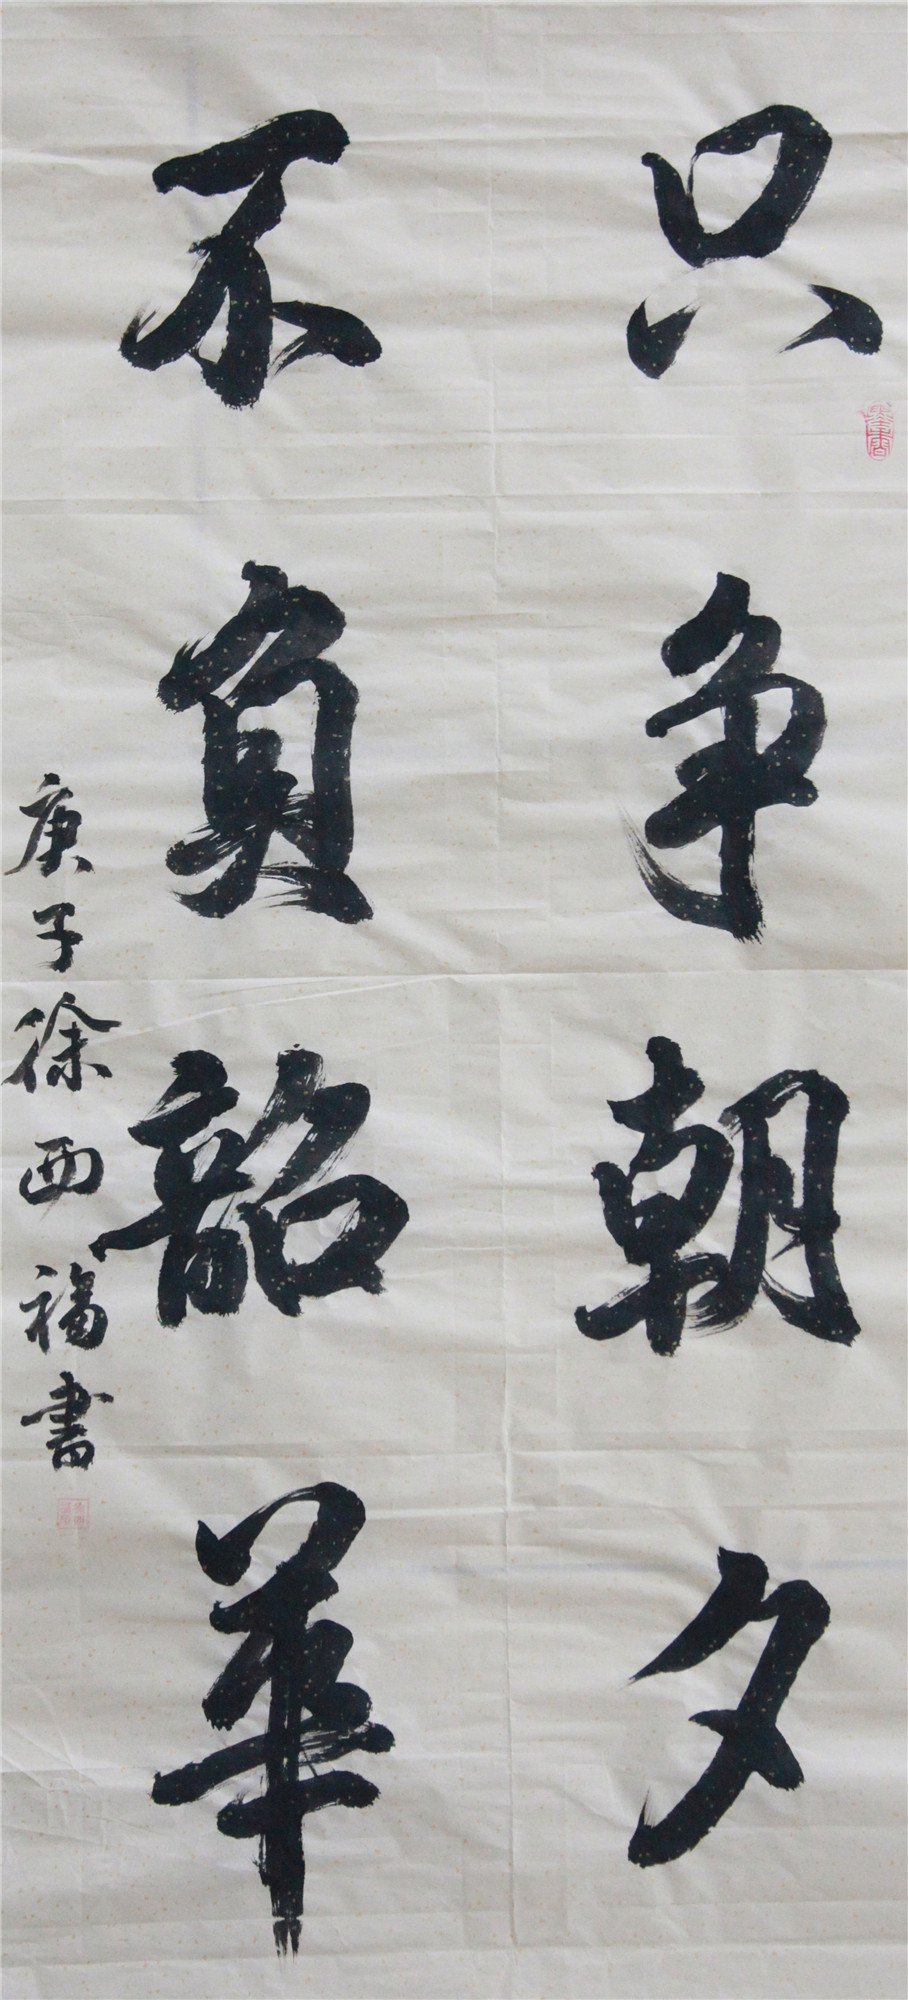 只争朝夕
不負韶華
庚子徐西福書
墨香